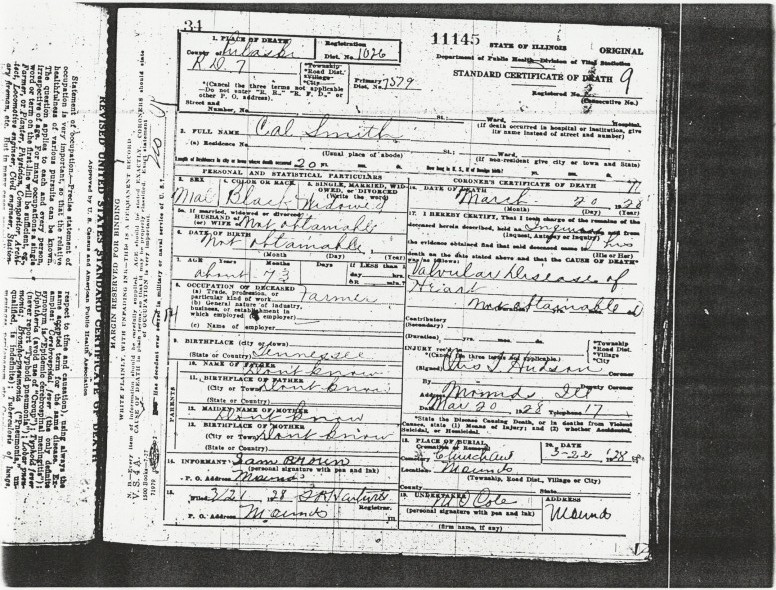 34
11145
STATE OF ILLINOIS ORIGINAL
Department of Public Health—Division of Vital Statistics
STANDARD CERTIFICATE OF DEATH 9
Registered No.
(Consecutive No.)
1. PLACE OF DEATH
County of Pulaski
Registration
Dist. No. 1026
R D 7
*Township
*Road Dist.
*Village
*City
Primary
Dist. No. 7579
*(Cancel the three terms not applicable
—Do not enter "R. R.," "R. F. D.," or
other P. O. address).
Street and
Number, No. St.; Ward, Hospital.
(If death occurred in hospital or institution, give
its name instead of street and number)
2. FULL NAME Cal Smith
(a) Residence No. St.; Ward,
(Usual place of abode) (If non-resident give city or town and State)
Length of Residence in city or town where death occurred 20 yrs. mos. ds. How long in U. S., if of foreign birth? yrs. mos. ds.
PERSONAL AND STATISTICAL PARTICULARS
3. SEX Male
4. COLOR OR RACE Black
5. SINGLE, MARRIED, WIDOWED, or DIVORCED
(Write the word)
Widowed
5a. If married, widowed or divorced
HUSBAND of
(or) WIFE of Not obtainable
6. DATE OF BIRTH
Not obtainable
(Month) (Day) (Year)
7. AGE Years Months Days If LESS than 1
about 73 day hrs.
OR min.?
8. OCCUPATION OF DECEASED
(a) Trade, profession, or
particular kind of work Farmer
(b) General nature of industry,
business, or establishment in
which employed (or employer)
(c) Name of employer
9. BIRTHPLACE (city or town)
(State or Country) Tennessee
PARENTS
10. NAME OF FATHER Dont Know
11. BIRTHPLACE OF FATHER
(City or Town) Dont Know
(State or Country)
12. MAIDEN NAME OF MOTHER Dont Know
13. BIRTHPLACE OF MOTHER
(City or Town) Dont Know
(State or Country)
14. INFORMANT Sam Brown
(personal signature with pen and ink)
P. O. Address Mounds
15. Filed 3/21 1928
Registrar.
P. O. Address Mounds Ill.
CORONER'S CERTIFICATE OF DEATH
16. DATE OF DEATH
March 20 1928
(Month) (Day) (Year)
17. I HEREBY CERTIFY, That I took charge of the remains of the
deceased herein described, held an Inquiry and from
(Inquest, Autopsy or Inquiry)
the evidence obtained find that said deceased came to his
(His or Her)
death on the date stated above and that the CAUSE OF DEATH*
was as follows:
Valvular Disease of
Heart
Not obtainable
Contributory
(Secondary)
(Duration) yrs. mos. ds.
INJURY rec'd in
*Township
*Road Dist.
*Village
*City
*(Cancel the three terms not applicable)
(Signed) Hudson Coroner
By Deputy Coroner
Address Mounds Ill
Date Mar 20 1928 Telephone 17
*State the Disease Causing Death, or in deaths from Violent
Causes, state (1) Means of Injury; and (2) whether Accidental,
Suicidal, or Homicidal.
18. PLACE OF BURIAL
Cremation or Removal
Location Mounds
(Township, Road District, Village or City)
County State
20. DATE
3-22 1928
19. UNDERTAKER
Cole
(personal signature with pen and ink)
(firm name, if any)
ADDRESS
Mounds
MARGIN RESERVED FOR BINDING
WRITE PLAINLY, WITH UNFADING INK—THIS IS A PERMANENT RECORD
V. S. 4 A.
REVISED UNITED STATES STANDARD CERTIFICATE OF DEATH
Approved by U. S. Census and American Public Health Association
Statement of occupation—Precise statement of
occupation is very important, so that the relative
healthfulness of various pursuits can be known.
The question applies to each and every person,
irrespective of age. For many occupations a single
word or term on the first line will be sufficient, eg.,
Farmer, or Planter, Physician, Compositor, Archi-
tect, Locomotive engineer, Civil engineer, Station-
ary fireman, etc.
respect to time and causation), using always the
same accepted term for the same disease. Ex-
amples: Cerebrospinal fever (the only definite
synonym is "Epidemic cerebrospinal meningitis");
Diphtheria (avoid use of "Croup"); Typhoid fever
(never report "Typhoid pneumonia"); Lobar pneu-
monia; Broncho-pneumonia ("Pneumonia," un-
qualified, is indefinite); Tuberculosis of lungs,